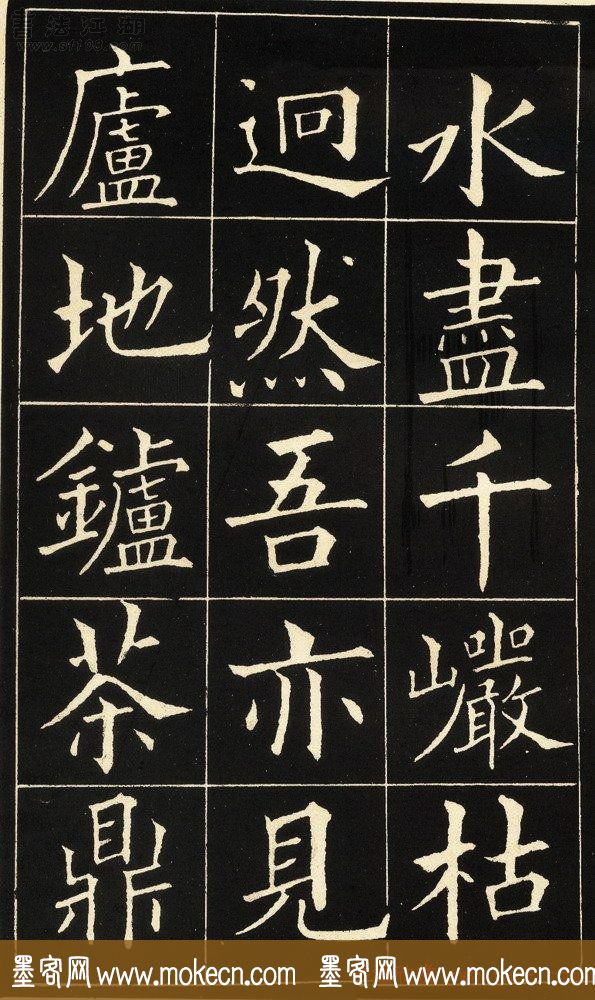 水盡千巗枯
迥然吾亦見
廬地鑪茶鼎
书法江湖
墨客网 www.mokecn.com 墨客网 www.mokecn.com